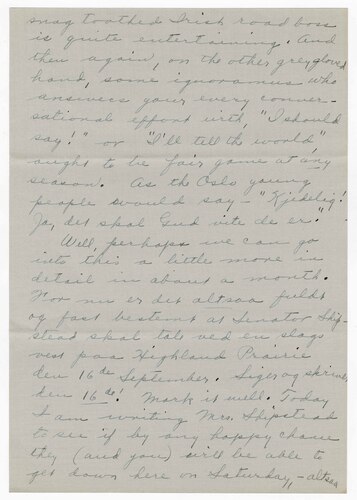 snag toothed Irish road boss
is quite entertaining. And
then again, on the other grey, gloved
hand, some ignoramus who
answers your every conver-
sational effort with, "I should
say!" or "I'll tell the world",
ought to be fair game at any
season. As the Oslo young
people would say - "Kjedelig!
Ja, det skal Gud vite de er."
Well, perhaps we can go
into this a little more in
detail in about a month.
For nu er det altsaa fuldt
og fast bestemt at Senator Ship-
stead skal tale ved en slags
vest paa Highland Prairie
den 16de September. Siger og skriver
den 16de! Mark it well. Today
I am writing Mrs. Shipstead
to see if by any happy chance
they (and you) will be able to
get down here on Saturday, - altsaa